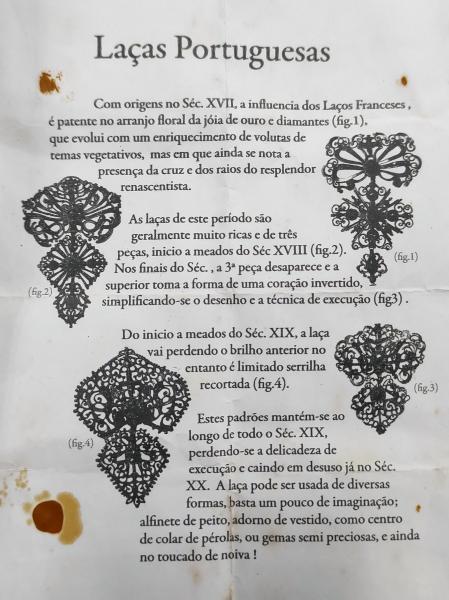 Laças Portuguesas
Com origens no Séc. XVII, a influencia dos Laços Franceses ,
é patente no arranjo floral da jóia de ouro e diamantes (fig.1),
que evolui com um enriquecimento de volutas de
temas vegetativos, mas em que ainda se nota a
presença da cruz e dos raios do resplendor
renascentista.
(fig.1)
As laças de este período são
geralmente muito ricas e de três
peças, inicio a meados do Séc XVIII (fig.2).
Nos finais do Séc. , a 3ª peça desaparece e a
superior toma a forma de uma coração invertido,
simplificando-se o desenho e a técnica de execução (fig3) .
(fig.2)
Do inicio a meados do Séc. XIX, a laça
vai perdendo o brilho anterior no
entanto é limitado serrilha
recortada (fig.4).
(fig.3)
(fig.4)
Estes padrões mantém-se ao
longo de todo o Séc. XIX,
perdendo-se a delicadeza de
execução e caindo em desuso já no Séc.
XX. A laça pode ser usada de diversas
formas, basta um pouco de imaginação;
alfinete de peito, adorno de vestido, como centro
de colar de pérolas, ou gemas semi preciosas, e ainda
no toucado de noiva !